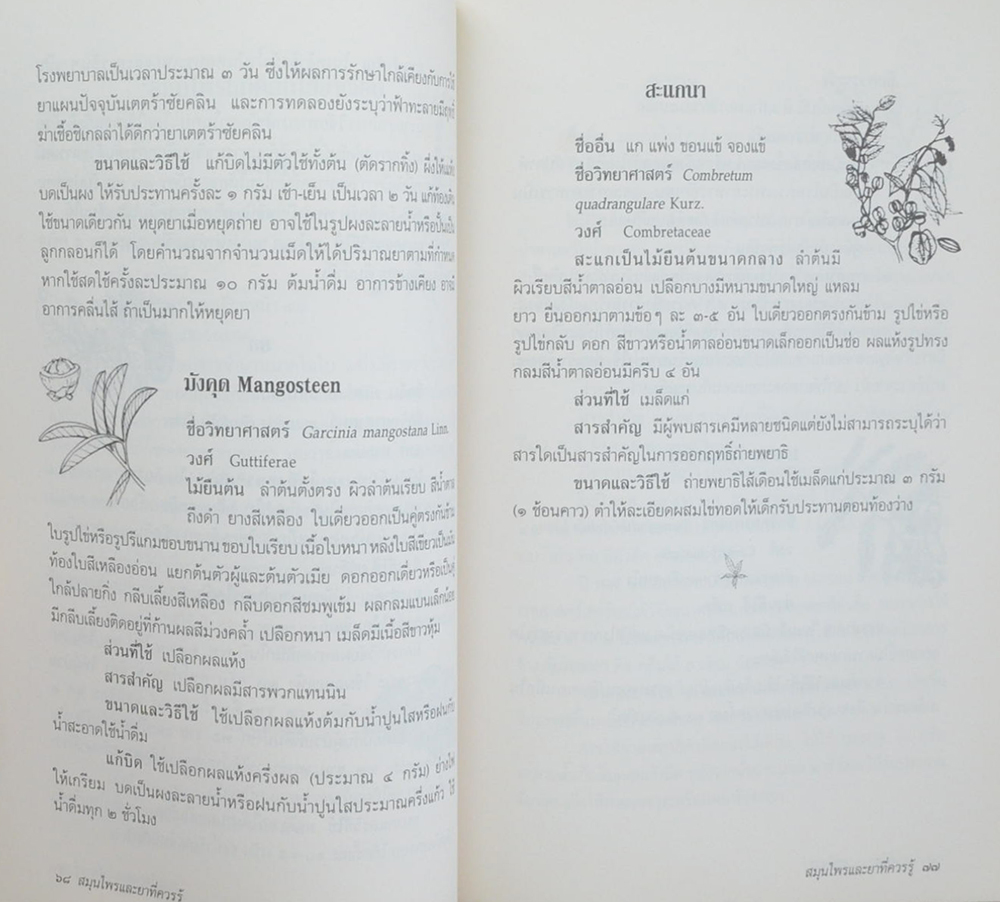 โรงพยาบาลเป็นเวลาประมาณ ๓ วัน ซึ่งให้ผลการรักษาใกล้เคียงกับการใช้
ยาแผนปัจจุบันเตตร้าซัยคลิน และการทดลองยังระบุว่าฟ้าทะลายมีฤทธิ์
ฆ่าเชื้อชิเกลล่าได้ดีกว่ายาเตตร้าซัยคลิน
ขนาดและวิธีใช้ แก้บิดไม่มีตัวใช้ทั้งต้น (ตัดรากทิ้ง) ผึ่งให้แห้ง
บดเป็นผง ให้รับประทานครั้งละ ๑ กรัม เช้า-เย็น เป็นเวลา ๒ วัน แก้ท้องเดิน
ใช้ขนาดเดียวกัน หยุดยาเมื่อหยุดถ่าย อาจใช้ในรูปผงละลายน้ำหรือปั้นเป็น
ลูกกลอนก็ได้ โดยคำนวณจากจำนวนเม็ดให้ได้ปริมาณยาตามที่กำหนด
หากใช้สดใช้ครั้งละประมาณ ๑๐ กรัม ต้มน้ำดื่ม อาการข้างเคียง อาจมี
อาการคลื่นไส้ ถ้าเป็นมากให้หยุดยา
มังคุด Mangosteen
ชื่อวิทยาศาสตร์ Garcinia mangostana Linn.
วงศ์ Guttiferae
ไม้ยืนต้น ลำต้นตั้งตรง ผิวลำต้นเรียบ สีน้ำตาล
ถึงดำ ยางสีเหลือง ใบเดี่ยวออกเป็นคู่ตรงกันข้าม
ใบรูปไข่หรือรูปรีแกมขอบขนาน ขอบใบเรียบ เนื้อใบหนา หลังใบสีเขียวเป็นมัน
ท้องใบสีเหลืองอ่อน แยกต้นตัวผู้และต้นตัวเมีย ดอกออกเดี่ยวหรือเป็นคู่
ใกล้ปลายกิ่ง กลีบเลี้ยงสีเหลือง กลีบดอกสีชมพูเข้ม ผลกลมแบนเล็กน้อย
มีกลีบเลี้ยงติดอยู่ที่ก้านผลสีม่วงคล้ำ เปลือกหนา เมล็ดมีเนื้อสีขาวหุ้ม
ส่วนที่ใช้ เปลือกผลแห้ง
สารสำคัญ เปลือกผลมีสารพวกแทนนิน
ขนาดและวิธีใช้ ใช้เปลือกผลแห้งต้มกับน้ำปูนใสหรือฝนกับ
น้ำสะอาดใช้น้ำดื่ม
แก้บิด ใช้เปลือกผลแห้งครึ่งผล (ประมาณ ๔ กรัม) ย่างไฟ
ให้เกรียม บดเป็นผงละลายน้ำหรือฝนกับน้ำปูนใสประมาณครึ่งแก้ว ใช้
น้ำดื่มทุก ๒ ชั่วโมง
๖๘ สมุนไพรและยาที่ควรรู้
สะแกนา
ชื่ออื่น แก แพ่ง ขอนแข้ จองแข้
ชื่อวิทยาศาสตร์ Combretum
quadrangulare Kurz.
วงศ์ Combretaceae
สะแกเป็นไม้ยืนต้นขนาดกลาง ลำต้นมี
ผิวเรียบสีน้ำตาลอ่อน เปลือกบางมีหนามขนาดใหญ่ แหลม
ยาว ยื่นออกมาตามข้อๆ ละ ๓-๕ อัน ใบเดี่ยวออกตรงกันข้าม รูปไข่หรือ
รูปไข่กลับ ดอก สีขาวหรือน้ำตาลอ่อนขนาดเล็กออกเป็นช่อ ผลแห้งรูปทรง
กลมสีน้ำตาลอ่อนมีครีบ ๔ อัน
ส่วนที่ใช้ เมล็ดแก่
สารสำคัญ มีผู้พบสารเคมีหลายชนิดแต่ยังไม่สามารถระบุได้ว่า
สารใดเป็นสารสำคัญในการออกฤทธิ์ถ่ายพยาธิ
ขนาดและวิธีใช้ ถ่ายพยาธิไส้เดือนใช้เมล็ดแก่ประมาณ ๓ กรัม
(๑ ช้อนคาว) ตำให้ละเอียดผสมไข่ทอดให้เด็กรับประทานตอนท้องว่าง
สมุนไพรและยาที่ควรรู้ ๗๗